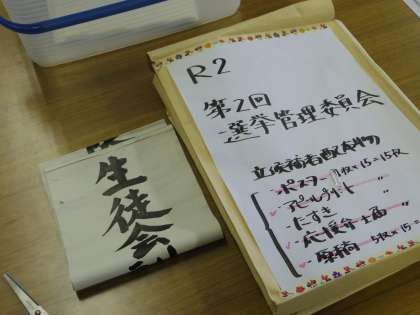 生徒会
R2
第2回
選挙管理委員会
立候補者配布物
・ポスター 1枚×15=15枚
・アピールシート 〃
・たすき 〃
・応援弁士届 〃
・原稿 5枚×15=